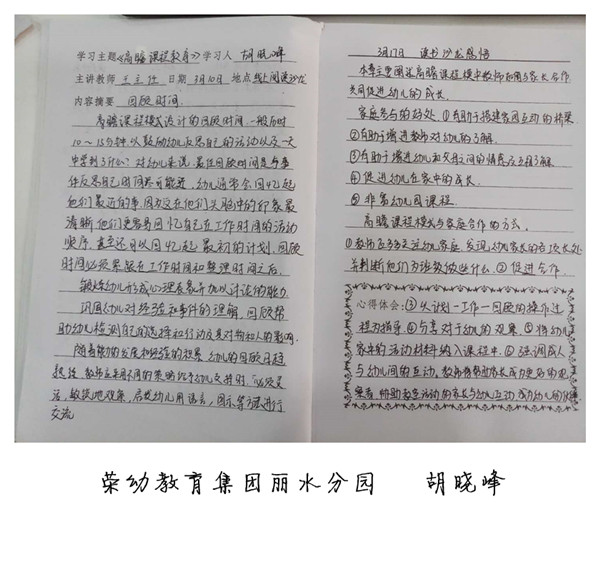 学习主题《高瞻课程教育》学习人 胡晓峰
主讲教师 王立德 日期 3月10日 地点 线上阅读沙龙
内容摘要 回顾时间.
高瞻课程模式设计的回顾时间一般历时
10～15分钟,以鼓励幼儿反思自己的活动以及一天
中学到了什么?对幼儿来说,最佳回顾时间是与事
件反思自己时间尽可能近,幼儿通常会回忆起
他们最近的事,因为这在他们头脑中的印象最
清晰,他们更容易回忆自己在工作时间的活动
顺序,甚至还可以回忆起最初的计划,回顾
时间必须紧跟在工作时间和整理时间之后.
锻炼幼儿形成心理表象并加以讨论的能力
巩固幼儿对经验和事件的理解,回顾帮
助幼儿检测自己的选择和行动及其对物和人的影响.
随着能力的发展和经验的积累,幼儿的回顾日趋
教师应采用不同的策略给予幼儿支持时,
敏锐地观察,启发幼儿用语言、图示等方式进行
交流
3月17日 读书沙龙感悟
本章主要阐述高瞻课程模中教师如何与家长合作
共同促进幼儿的成长.
家庭参与的好处.①有助于搭建家园互动的桥梁.
②有助于增进教师对幼儿的了解.
③有助于增进幼儿和父母之间的情感及互相了解.
④促进幼儿在家中的成长.
⑤丰富幼儿园课程.
高瞻课程模式与家庭合作的方式.
①教师应多多走近幼儿家庭,发现幼儿家长的各项长处
并判断他们为班级做些什么.②促进合作.
心得体会:③从计划-工作-回顾的操作过
程为指导.④分享对于幼儿的观察.⑤将幼儿
家中的活动材料纳入课程中.⑥强调成人
与幼儿间的互动,教师将帮助家长成为更好的观
察者,协助教室活动的家长与幼儿互动,成为幼儿的伙伴
荣幼教育集团丽水分园 胡晓峰